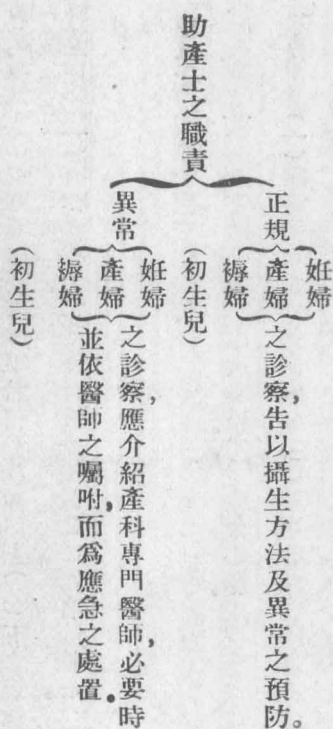 助產士之職責
正規
妊婦
產婦
褥婦
(初生兒)
之診察,告以攝生方法及異常之預防。
異常
妊婦
產婦
褥婦
(初生兒)
之診察,應介紹產科專門醫師,必要時
並依醫師之囑咐,而爲應急之處置。